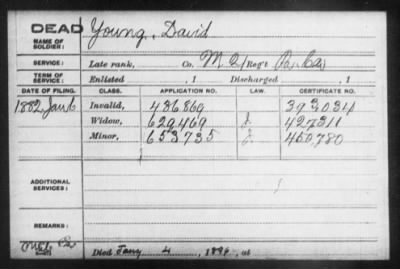 DEAD
NAME OF SOLDIER: Young, David
SERVICE: Late rank, Co. M 21 Reg't Pa. Cav
TERM OF SERVICE: Enlisted , 1 Discharged , 1
DATE OF FILING. CLASS. APPLICATION NO. LAW. CERTIFICATE NO.
1882, Jan 6 Invalid, 436869 393034
Widow, 629469 427311
Minor, 653735 450,780
ADDITIONAL SERVICES:
REMARKS:
Died Jany 4, 189 , at